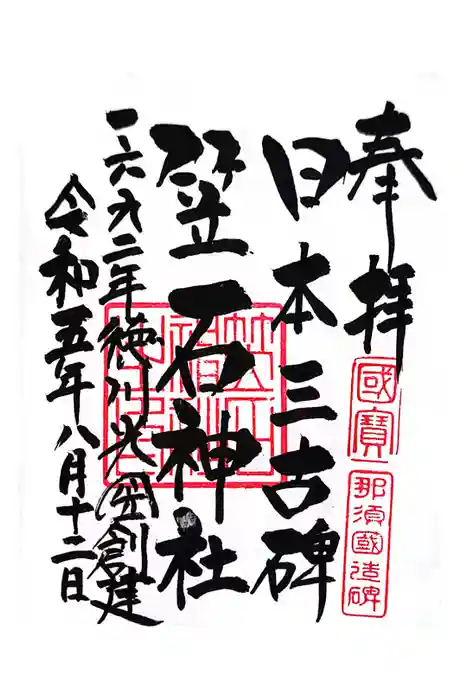 奉拝
國寶
那須國造碑
日本三古碑
笠石神社
一六九二年徳川光圀創建
令和五年八月十二日